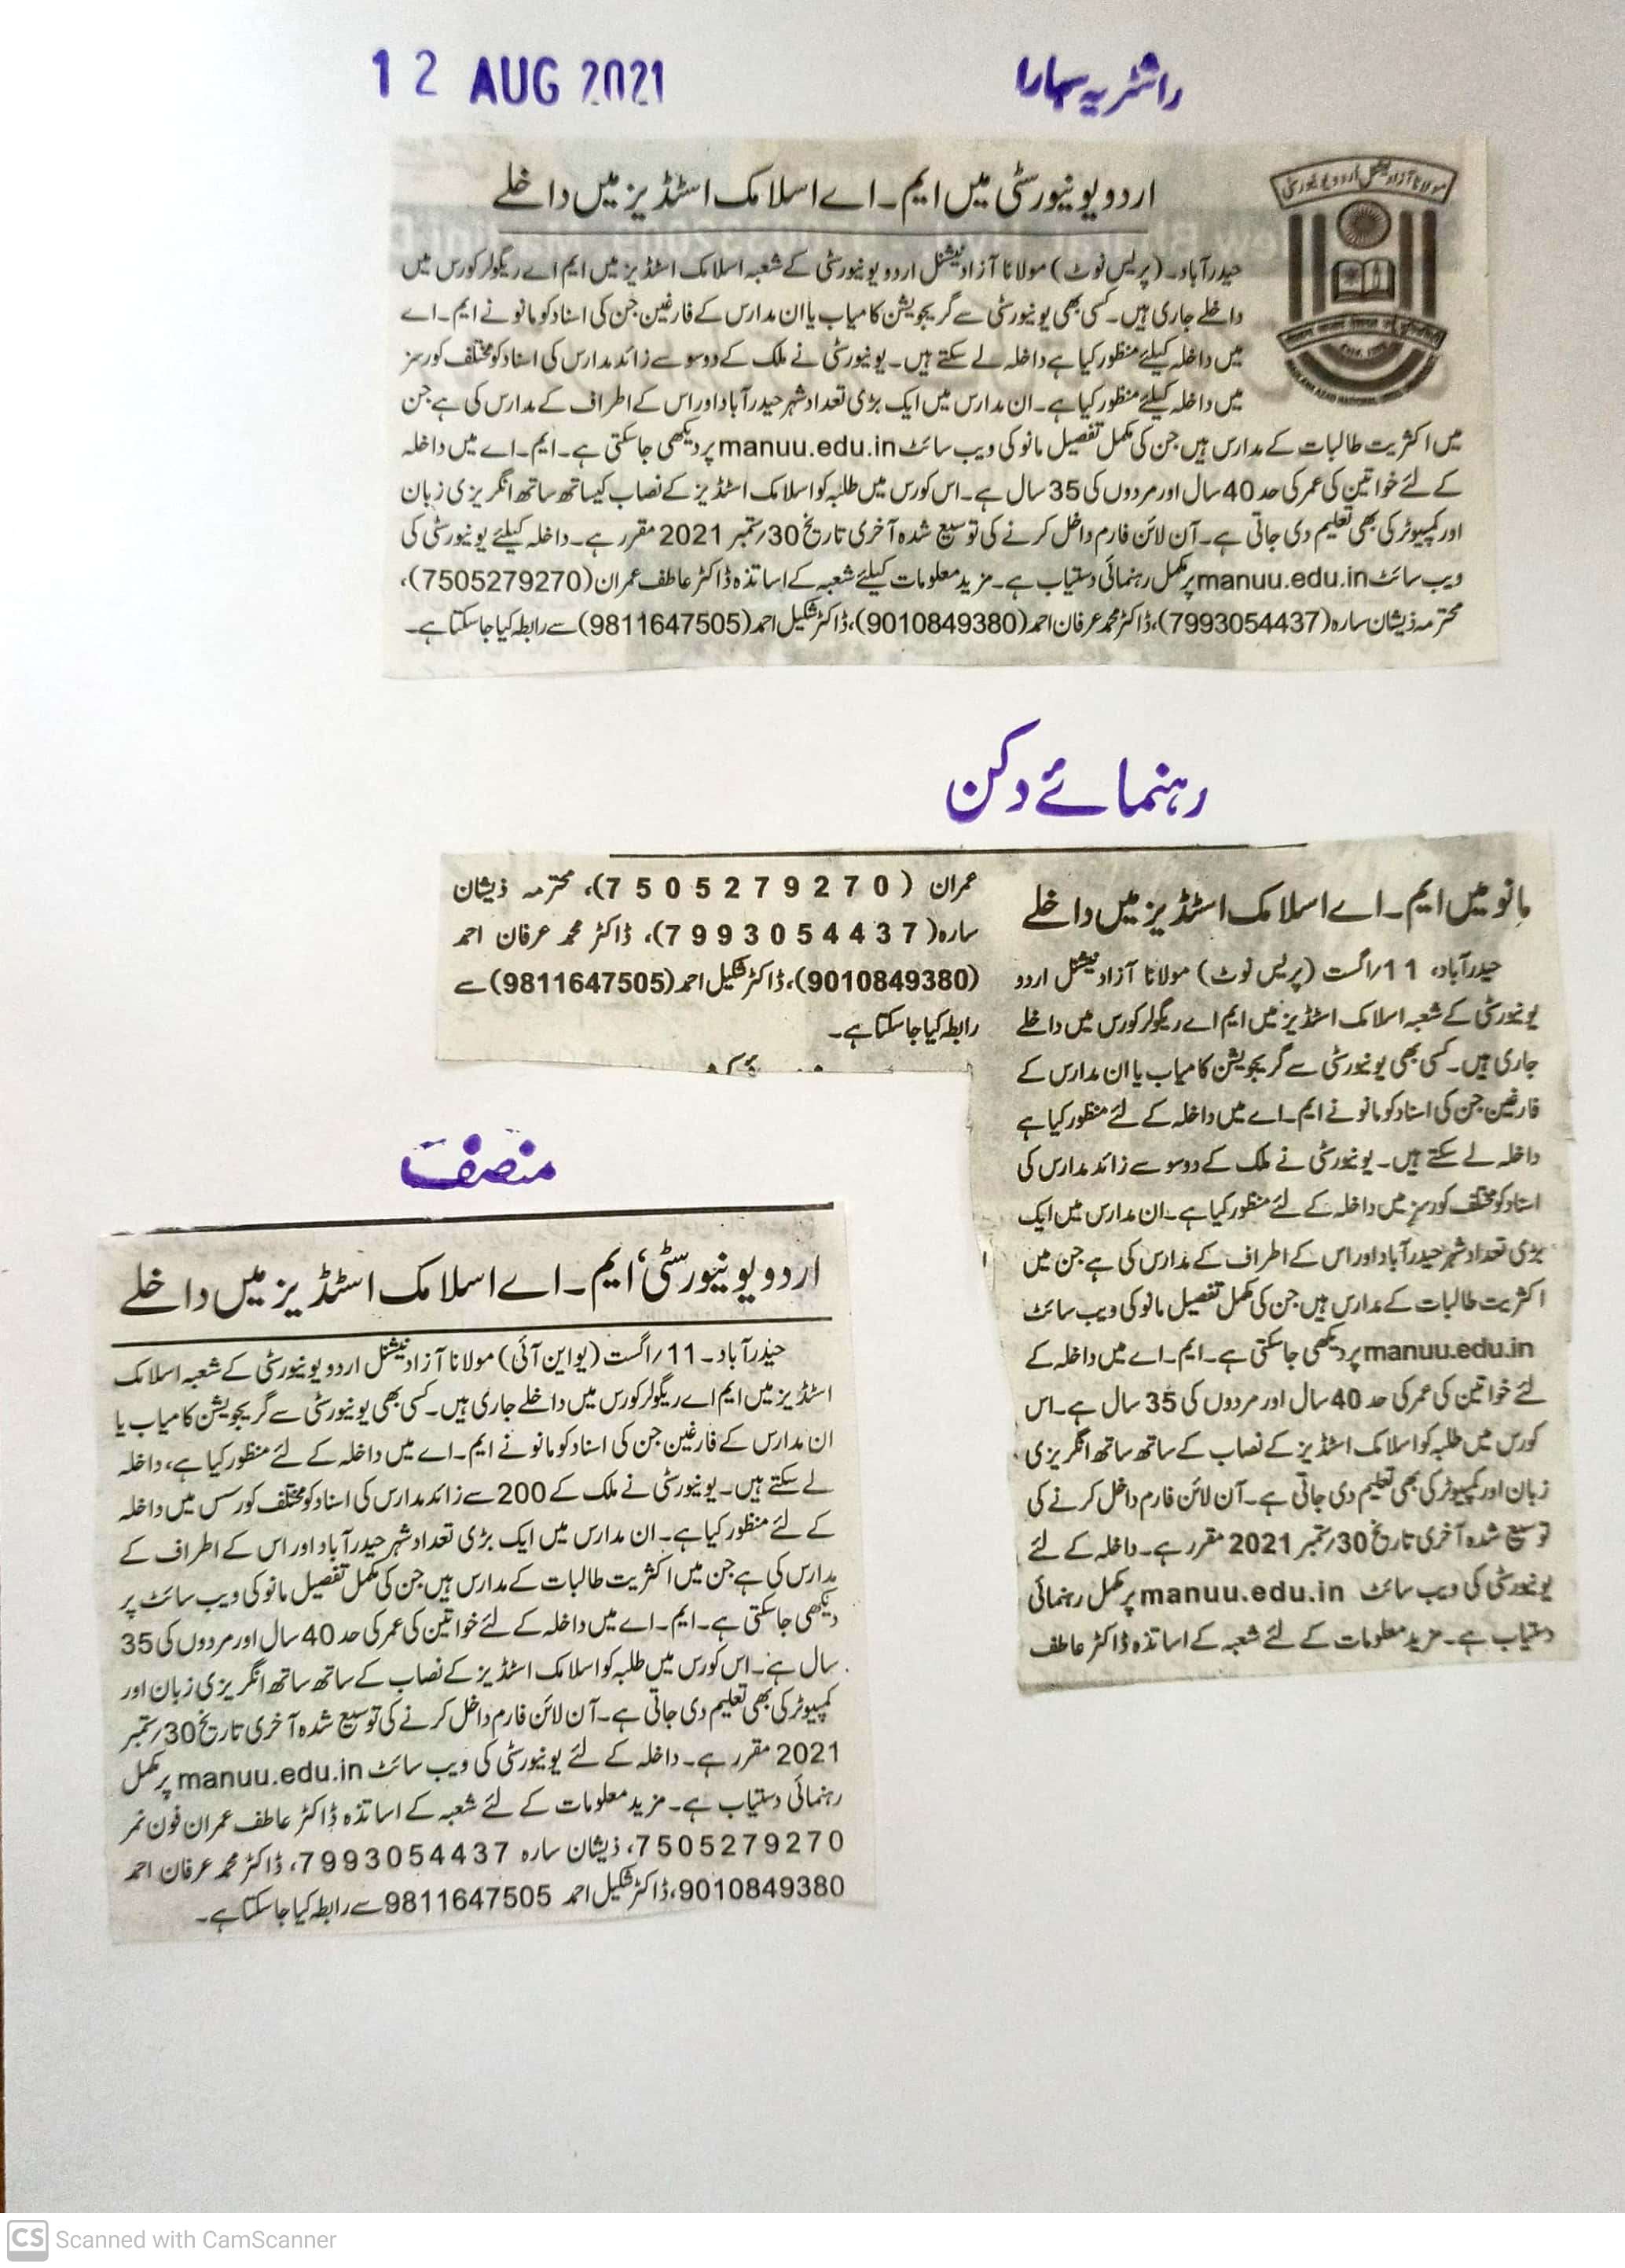 12 AUG 2021
راشٹریہ سہارا
اردو یونیورسٹی میں ایم۔اے اسلامک اسٹڈیز میں داخلے
حیدرآباد۔(پریس نوٹ) مولانا آزاد نیشنل اردو یونیورسٹی کے شعبہ اسلامک اسٹڈیز میں ایم اے ریگولر کورس میں
داخلے جاری ہیں۔کسی بھی یونیورسٹی سے گریجویشن کامیاب یا ان مدارس کے فارغین جن کی اسناد کو مانو نے ایم۔اے
میں داخلہ کیلئے منظور کیا ہے داخلہ لے سکتے ہیں۔یونیورسٹی نے ملک کے دوسو سے زائد مدارس کی اسناد کو مختلف کورسز
میں داخلہ کیلئے منظور کیا ہے۔ان مدارس میں ایک بڑی تعداد شہر حیدرآباد اور اس کے اطراف کے مدارس کی ہے جن
میں اکثریت طالبات کے مدارس ہیں جن کی مکمل تفصیل مانو کی ویب سائٹ manuu.edu.in پر دیکھی جاسکتی ہے۔ایم۔اے میں داخلہ
کے لئے خواتین کی عمر کی حد 40 سال اور مردوں کی 35 سال ہے۔اس کورس میں طلبہ کو اسلامک اسٹڈیز کے نصاب کیساتھ ساتھ انگریزی زبان
اور کمپیوٹر کی بھی تعلیم دی جاتی ہے۔آن لائن فارم داخل کرنے کی توسیع شدہ آخری تاریخ 30؍ستمبر 2021 مقرر ہے۔داخلہ کیلئے یونیورسٹی کی
ویب سائٹ manuu.edu.in پر مکمل رہنمائی دستیاب ہے۔مزید معلومات کیلئے شعبہ کے اساتذہ ڈاکٹر عاطف عمران (7505279270)،
محترمہ ذیشان سارہ (7993054437)، ڈاکٹر محمد عرفان احمد (9010849380)، ڈاکٹر شکیل احمد (9811647505) سے رابطہ کیا جاسکتا ہے۔
رہنمائے دکن
مانو میں ایم۔اے اسلامک اسٹڈیز میں داخلے
حیدرآباد، 11؍اگست (پریس نوٹ) مولانا آزاد نیشنل اردو
یونیورسٹی کے شعبہ اسلامک اسٹڈیز میں ایم اے ریگولر کورس میں داخلے
جاری ہیں۔کسی بھی یونیورسٹی سے گریجویشن کامیاب یا ان مدارس کے
فارغین جن کی اسناد کو مانو نے ایم۔اے میں داخلہ کے لئے منظور کیا ہے
داخلہ لے سکتے ہیں۔یونیورسٹی نے ملک کے دوسو سے زائد مدارس کی
اسناد کو مختلف کورسز میں داخلہ کے لئے منظور کیا ہے۔ان مدارس میں ایک
بڑی تعداد شہر حیدرآباد اور اس کے اطراف کے مدارس کی ہے جن میں
اکثریت طالبات کے مدارس ہیں جن کی مکمل تفصیل مانو کی ویب سائٹ
manuu.edu.in پر دیکھی جاسکتی ہے۔ایم۔اے میں داخلہ کے
لئے خواتین کی عمر کی حد 40 سال اور مردوں کی 35 سال ہے۔اس
کورس میں طلبہ کو اسلامک اسٹڈیز کے نصاب کے ساتھ ساتھ انگریزی
زبان اور کمپیوٹر کی بھی تعلیم دی جاتی ہے۔آن لائن فارم داخل کرنے کی
توسیع شدہ آخری تاریخ 30؍ستمبر 2021 مقرر ہے۔داخلہ کے لئے
یونیورسٹی کی ویب سائٹ manuu.edu.in پر مکمل رہنمائی
دستیاب ہے۔مزید معلومات کے لئے شعبہ کے اساتذہ ڈاکٹر عاطف
عمران (7505279270)، محترمہ ذیشان
سارہ (7993054437)، ڈاکٹر محمد عرفان احمد
(9010849380)، ڈاکٹر شکیل احمد (9811647505) سے
رابطہ کیا جاسکتا ہے۔
منصف
اردو یونیورسٹی، ایم۔اے اسلامک اسٹڈیز میں داخلے
حیدرآباد۔11؍اگست (یواین آئی) مولانا آزاد نیشنل اردو یونیورسٹی کے شعبہ اسلامک
اسٹڈیز میں ایم اے ریگولر کورس میں داخلے جاری ہیں۔کسی بھی یونیورسٹی سے گریجویشن کامیاب یا
ان مدارس کے فارغین جن کی اسناد کو مانو نے ایم۔اے میں داخلہ کے لئے منظور کیا ہے، داخلہ
لے سکتے ہیں۔یونیورسٹی نے ملک کے 200 سے زائد مدارس کی اسناد کو مختلف کورسس میں داخلہ
کے لئے منظور کیا ہے۔ان مدارس میں ایک بڑی تعداد شہر حیدرآباد اور اس کے اطراف کے
مدارس کی ہے جن میں اکثریت طالبات کے مدارس ہیں جن کی مکمل تفصیل مانو کی ویب سائٹ پر
دیکھی جاسکتی ہے۔ایم۔اے میں داخلہ کے لئے خواتین کی عمر کی حد 40 سال اور مردوں کی 35
سال ہے۔اس کورس میں طلبہ کو اسلامک اسٹڈیز کے نصاب کے ساتھ ساتھ انگریزی زبان اور
کمپیوٹر کی بھی تعلیم دی جاتی ہے۔آن لائن فارم داخل کرنے کی توسیع شدہ آخری تاریخ 30؍ستمبر
2021 مقرر ہے۔داخلہ کے لئے یونیورسٹی کی ویب سائٹ manuu.edu.in پر مکمل
رہنمائی دستیاب ہے۔مزید معلومات کے لئے شعبہ کے اساتذہ ڈاکٹر عاطف عمران فون نمبر
7505279270، ذیشان سارہ 7993054437، ڈاکٹر محمد عرفان احمد
9010849380، ڈاکٹر شکیل احمد 9811647505 سے رابطہ کیا جاسکتا ہے۔
CS Scanned with CamScanner